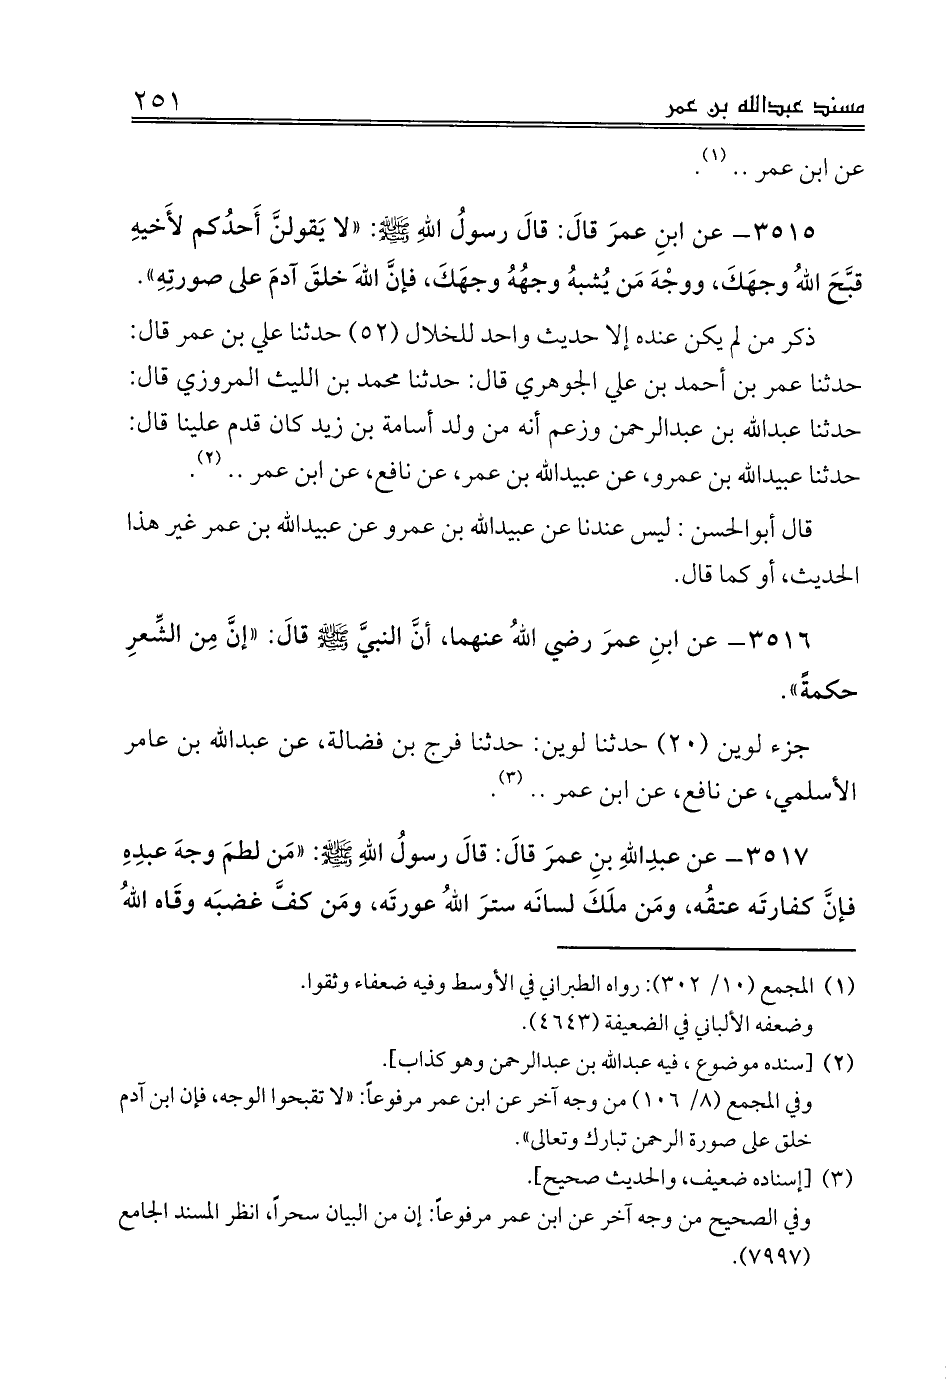 مسند عبدالله بن عمر ٢٥١
عن ابن عمر .. (١).
٣٥١٥ــ عن ابنِ عمرَ قالَ: قالَ رسولُ اللهِ ﷺ: «لا يَقولنَّ أَحدُكم لأَخيهِ
قبَّحَ اللهُ وجهَكَ، ووجْهَ مَن يُشبهُ وجهُهُ وجهَكَ، فإنَّ اللهَ خلقَ آدمَ على صورتِهِ».
ذكر من لم يكن عنده إلا حديث واحد للخلال (٥٢) حدثنا علي بن عمر قال:
حدثنا عمر بن أحمد بن علي الجوهري قال: حدثنا محمد بن الليث المروزي قال:
حدثنا عبدالله بن عبدالرحمن وزعم أنه من ولد أسامة بن زيد كان قدم علينا قال:
حدثنا عبيدالله بن عمرو، عن عبيدالله بن عمر، عن نافع، عن ابن عمر .. (٢).
قال أبوالحسن : ليس عندنا عن عبيدالله بن عمرو عن عبيدالله بن عمر غير هذا
الحديث، أو كما قال.
٣٥١٦ــ عن ابنِ عمرَ رضي اللهُ عنهما، أنَّ النبيَّ ﷺ قالَ: «إنَّ مِن الشِّعرِ
حكمةً».
جزء لوين (٢٠) حدثنا لوين: حدثنا فرج بن فضالة، عن عبدالله بن عامر
الأسلمي، عن نافع، عن ابن عمر .. (٣).
٣٥١٧ــ عن عبدِاللهِ بنِ عمرَ قالَ: قالَ رسولُ اللهِ ﷺ: «مَن لطمَ وجهَ عبدِهِ
فإنَّ كفارتَه عتقُه، ومَن ملَكَ لسانَه سترَ اللهُ عورتَه، ومَن كفَّ غضبَه وقَاه اللهُ
(١) المجمع (١٠/ ٣٠٢): رواه الطبراني في الأوسط وفيه ضعفاء وثقوا.
وضعفه الألباني في الضعيفة (٤٦٤٣).
(٢) [سنده موضوع ، فيه عبدالله بن عبدالرحمن وهو كذاب].
وفي المجمع (٨/ ١٠٦) من وجه آخر عن ابن عمر مرفوعاً: «لا تقبحوا الوجه، فإن ابن آدم
خلق على صورة الرحمن تبارك وتعالى».
(٣) [إسناده ضعيف، والحديث صحيح].
وفي الصحيح من وجه آخر عن ابن عمر مرفوعاً: إن من البيان سحراً، انظر المسند الجامع
(٧٩٩٧).